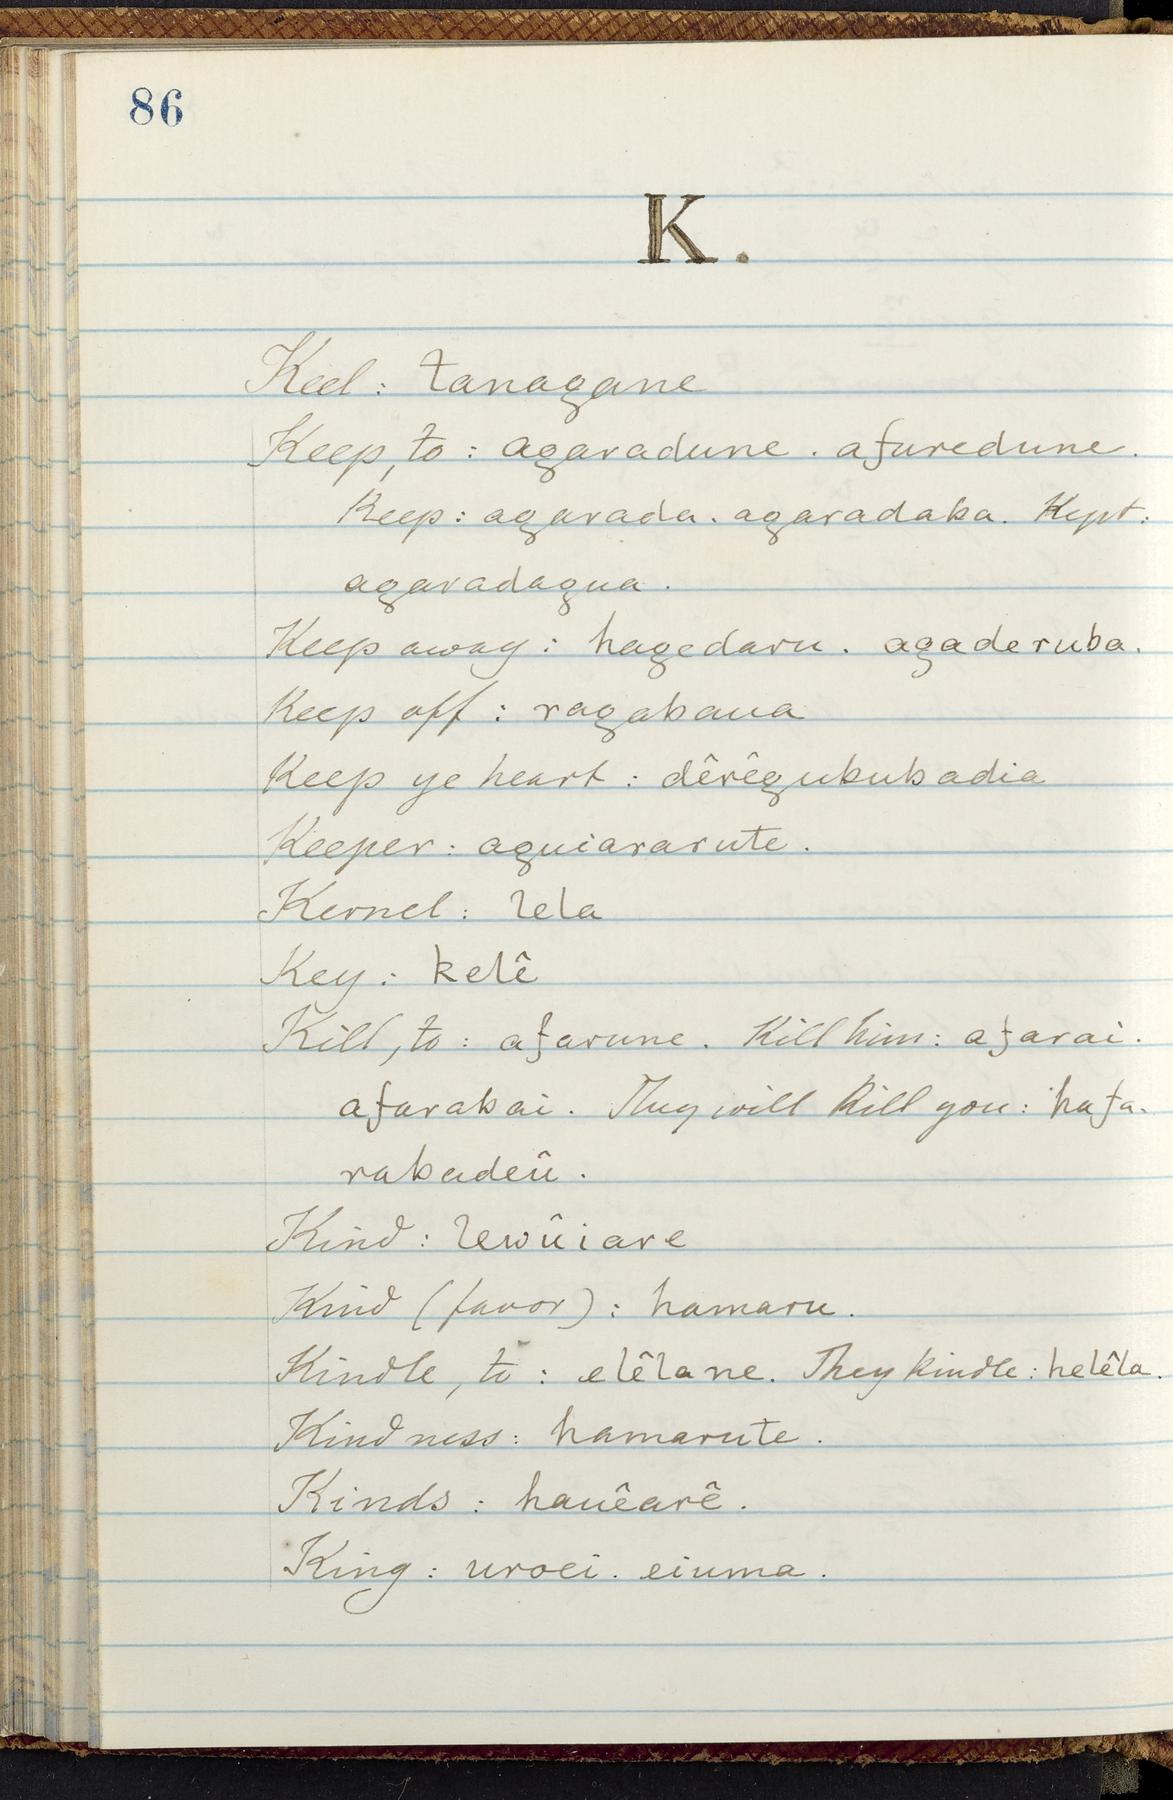 86
K.
Keel: tanagane
Keep, to: agaradune. afuredune.
Keep: agarada. agaradaba. Kept:
agaradagua.
Keep away: hagedaru. agaderuba.
Keep off: ragabaua
Keep ye heart: dêrêgububadia
Keeper: aguiararute.
Kernel: lela
Key: kelê
Kill, to: afarune. Kill him: afarai.
afarabai. They will kill you: hafa-
rabadeû.
Kind: lewûiare
Kind (favor): hamaru.
Kindle, to: elêlane. They kindle: helêla.
Kindness: hamarute.
Kinds: hauêarê.
King: uroei. eiuma.